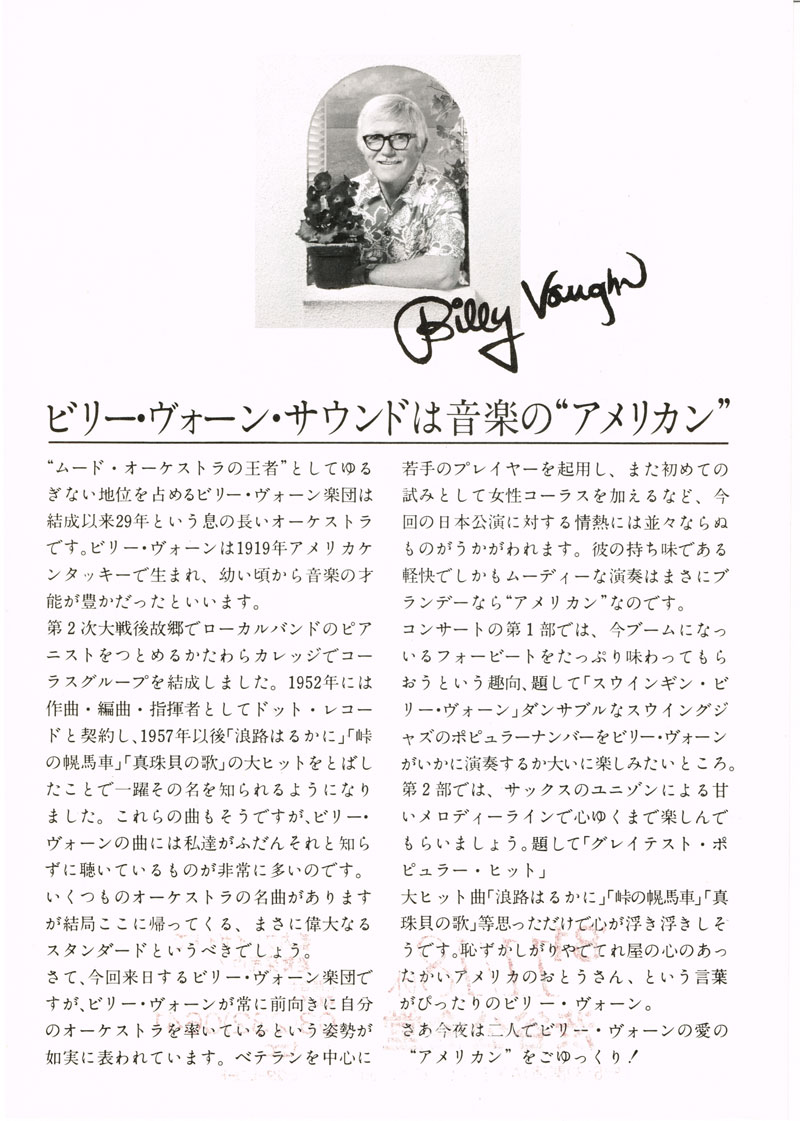 Billy Vaughn
ビリー・ヴォーン・サウンドは音楽の“アメリカン”
“ムード・オーケストラの王者”としてゆる
ぎない地位を占めるビリー・ヴォーン楽団は
結成以来29年という息の長いオーケストラ
です。ビリー・ヴォーンは1919年アメリカケ
ンタッキーで生まれ、幼い頃から音楽の才
能が豊かだったといいます。
第2次大戦後故郷でローカルバンドのピア
ニストをつとめるかたわらカレッジでコー
ラスグループを結成しました。1952年には
作曲・編曲・指揮者としてドット・レコー
ドと契約し、1957年以後「浪路はるかに」「峠
の幌馬車」「真珠貝の歌」の大ヒットをとばし
たことで一躍その名を知られるようになり
ました。これらの曲もそうですが、ビリー・
ヴォーンの曲には私達がふだんそれと知ら
ずに聴いているものが非常に多いのです。
いくつものオーケストラの名曲があります
が結局ここに帰ってくる、まさに偉大なる
スタンダードというべきでしょう。
さて、今回来日するビリー・ヴォーン楽団で
すが、ビリー・ヴォーンが常に前向きに自分
のオーケストラを率いているという姿勢が
如実に表われています。ベテランを中心に
若手のプレイヤーを起用し、また初めての
試みとして女性コーラスを加えるなど、今
回の日本公演に対する情熱には並々ならぬ
ものがうかがわれます。彼の持ち味である
軽快でしかもムーディーな演奏はまさにブ
ランデーなら“アメリカン”なのです。
コンサートの第1部では、今ブームになっ
いるフォービートをたっぷり味わってもら
おうという趣向、題して「スウインギン・ビ
リー・ヴォーン」ダンサブルなスウイングジ
ャズのポピュラーナンバーをビリー・ヴォーン
がいかに演奏するか大いに楽しみたいところ。
第2部では、サックスのユニゾンによる甘
いメロディーラインで心ゆくまで楽しんで
もらいましょう。題して「グレイテスト・ポ
ピュラー・ヒット」
大ヒット曲「浪路はるかに」「峠の幌馬車」「真
珠貝の歌」等思っただけで心が浮き浮きしそ
うです。恥ずかしがりやでてれ屋の心のあっ
たかいアメリカのおとうさん、という言葉
がぴったりのビリー・ヴォーン。
さあ今夜は二人でビリー・ヴォーンの愛の
“アメリカン”をごゆっくり！